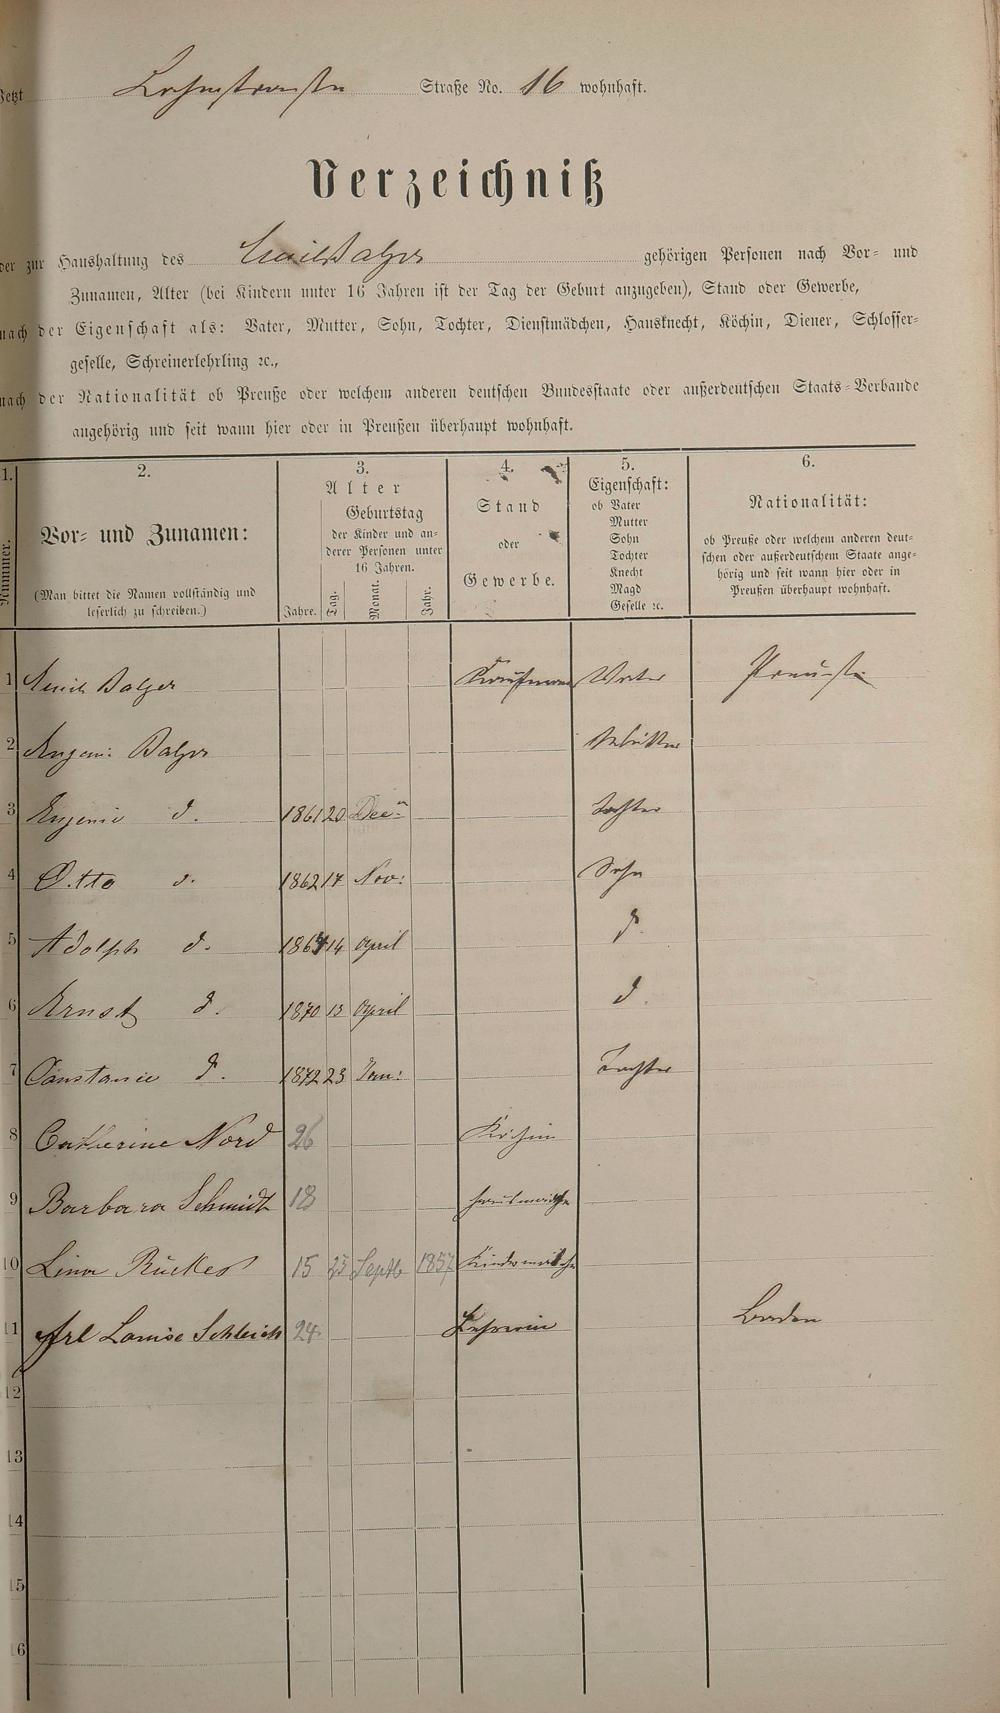 Jetzt Straße No. 16 wohnhaft.
Verzeichniß
der zur Haushaltung des Emil Balzer gehörigen Personen nach Vor- und
Zunamen, Alter (bei Kindern unter 16 Jahren ist der Tag der Geburt anzugeben), Stand oder Gewerbe,
nach der Eigenschaft als: Vater, Mutter, Sohn, Tochter, Dienstmädchen, Hausknecht, Köchin, Diener, Schlosser-
geselle, Schreinerlehrling ꝛc.,
nach der Nationalität ob Preuße oder welchem anderen deutschen Bundesstaate oder außerdeutschen Staats-Verbande
angehörig und seit wann hier oder in Preußen überhaupt wohnhaft.
1. 2. 3. 4. 5. 6.
Nummer.
Vor- und Zunamen:
(Man bittet die Namen vollständig und
leserlich zu schreiben.)
Alter
Geburtstag
der Kinder und an-
derer Personen unter
16 Jahren.
Jahre. Tag. Monat. Jahr.
Stand
oder
Gewerbe.
Eigenschaft:
ob Vater
Mutter
Sohn
Tochter
Knecht
Magd
Geselle ꝛc.
Nationalität:
ob Preuße oder welchem anderen deut-
schen oder außerdeutschem Staate ange-
hörig und seit wann hier oder in
Preußen überhaupt wohnhaft.
1 Emil Balzer Kaufmann Vater
2 Balzer Mutter
3 Eugenie d. 1861 20 Dec. Tochter
4 Otto d. 1862 17 Nov: Sohn
5 Adolph d. 14 April d.
6 Ernst d. 1870 13 April d.
7 Constanze d. 1872 23 Jan: Tochter
8 Catherine Nord 26 Köchin
9 Barbara Schmidt 18 Hausmädchen
10 Lina Rücker 15 23 Septb 1857 Kindermädchen
11 Frl Louise Schleich 24 Lehrerin Baden
12
13
14
15
16